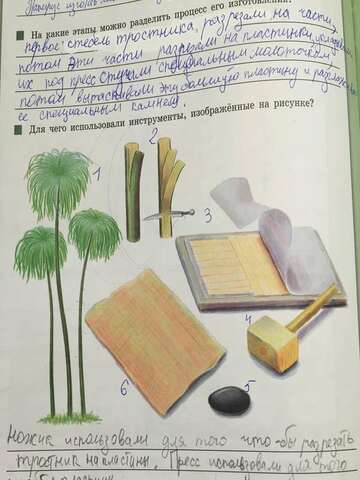 Папирус
■ На какие этапы можно разделить процесс его изготовления?
первое стебель тростника, разрезали на части,
потом эти части разрезали на пластинки,
их под пресс стучали специальным молоточком
потом вытаскивали эту большую пластину и
ее специальным камнем.
■ Для чего использовали инструменты, изображённые на рисунке?
1
2
3
4
5
6
Ножик использовали для того что-бы разрезать
тростник на пластины. Пресс использовали для того